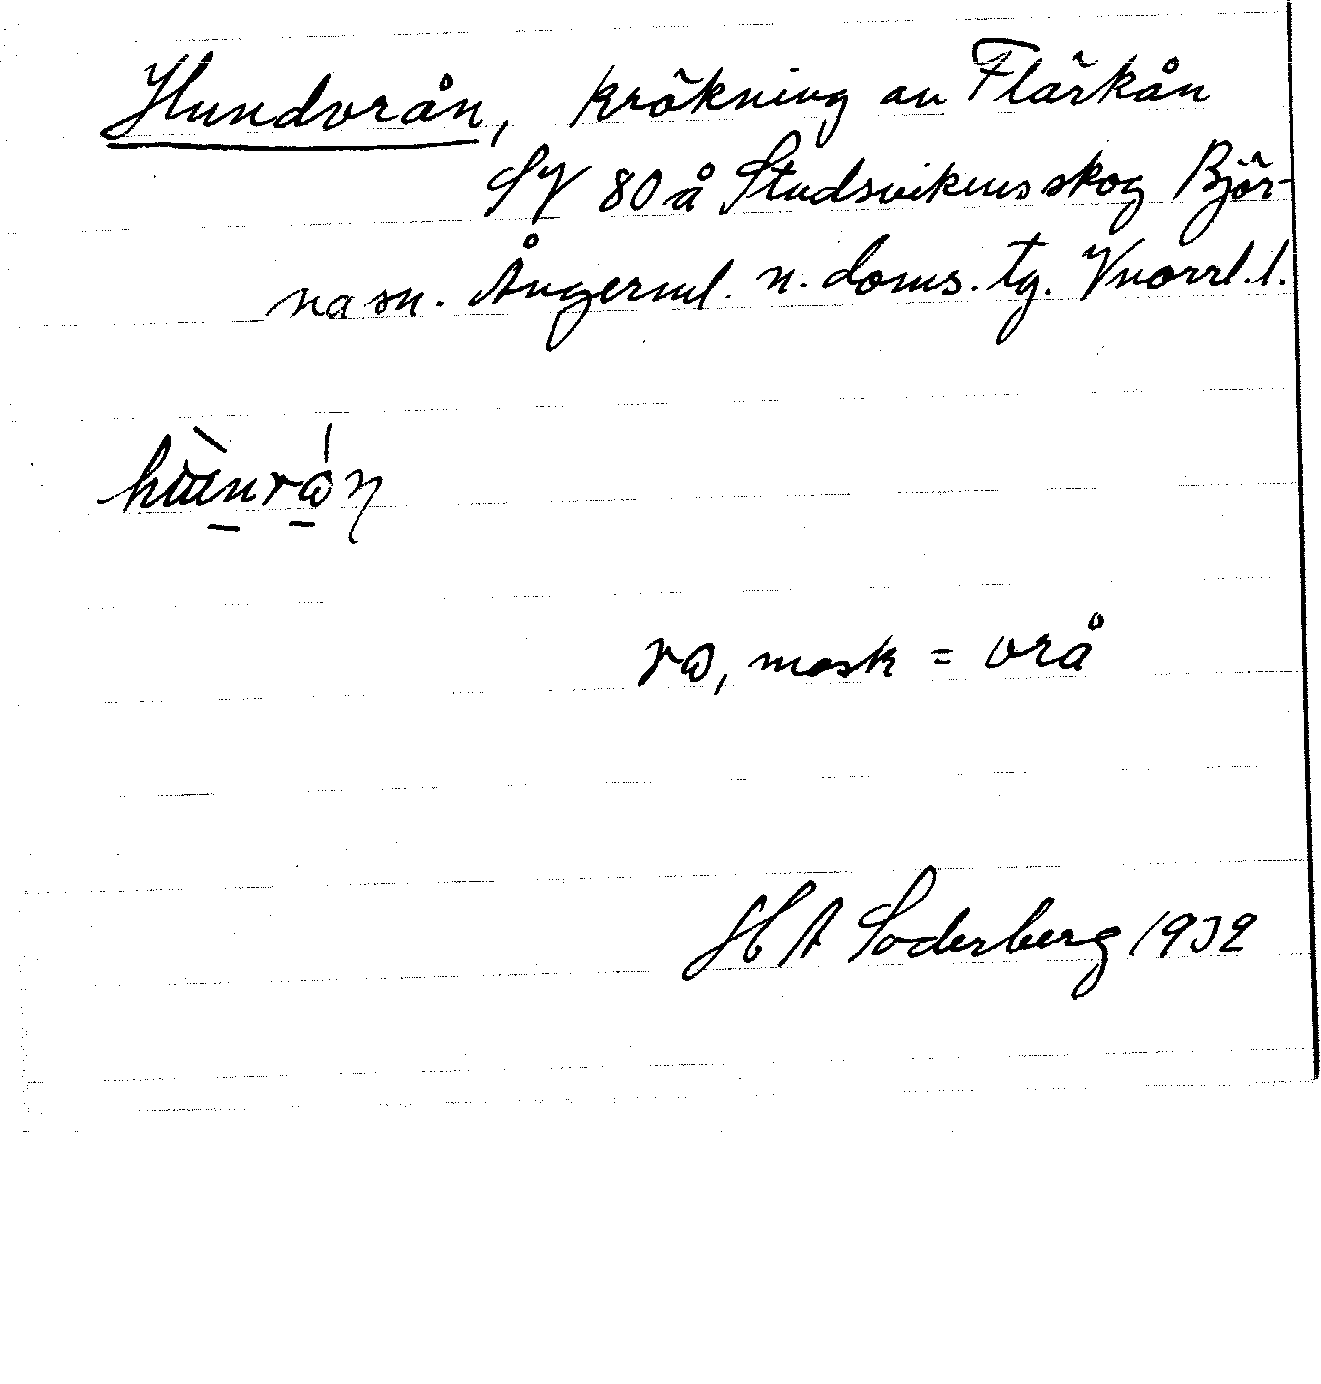 Hundvrån, krökning av Flärkån
SV 80 å Studsvikens skog Björ-
na sn. Ångerml. n. doms. tg. Vnorrl. l.
rɷ, mask = vrå
H A Söderberg 1932